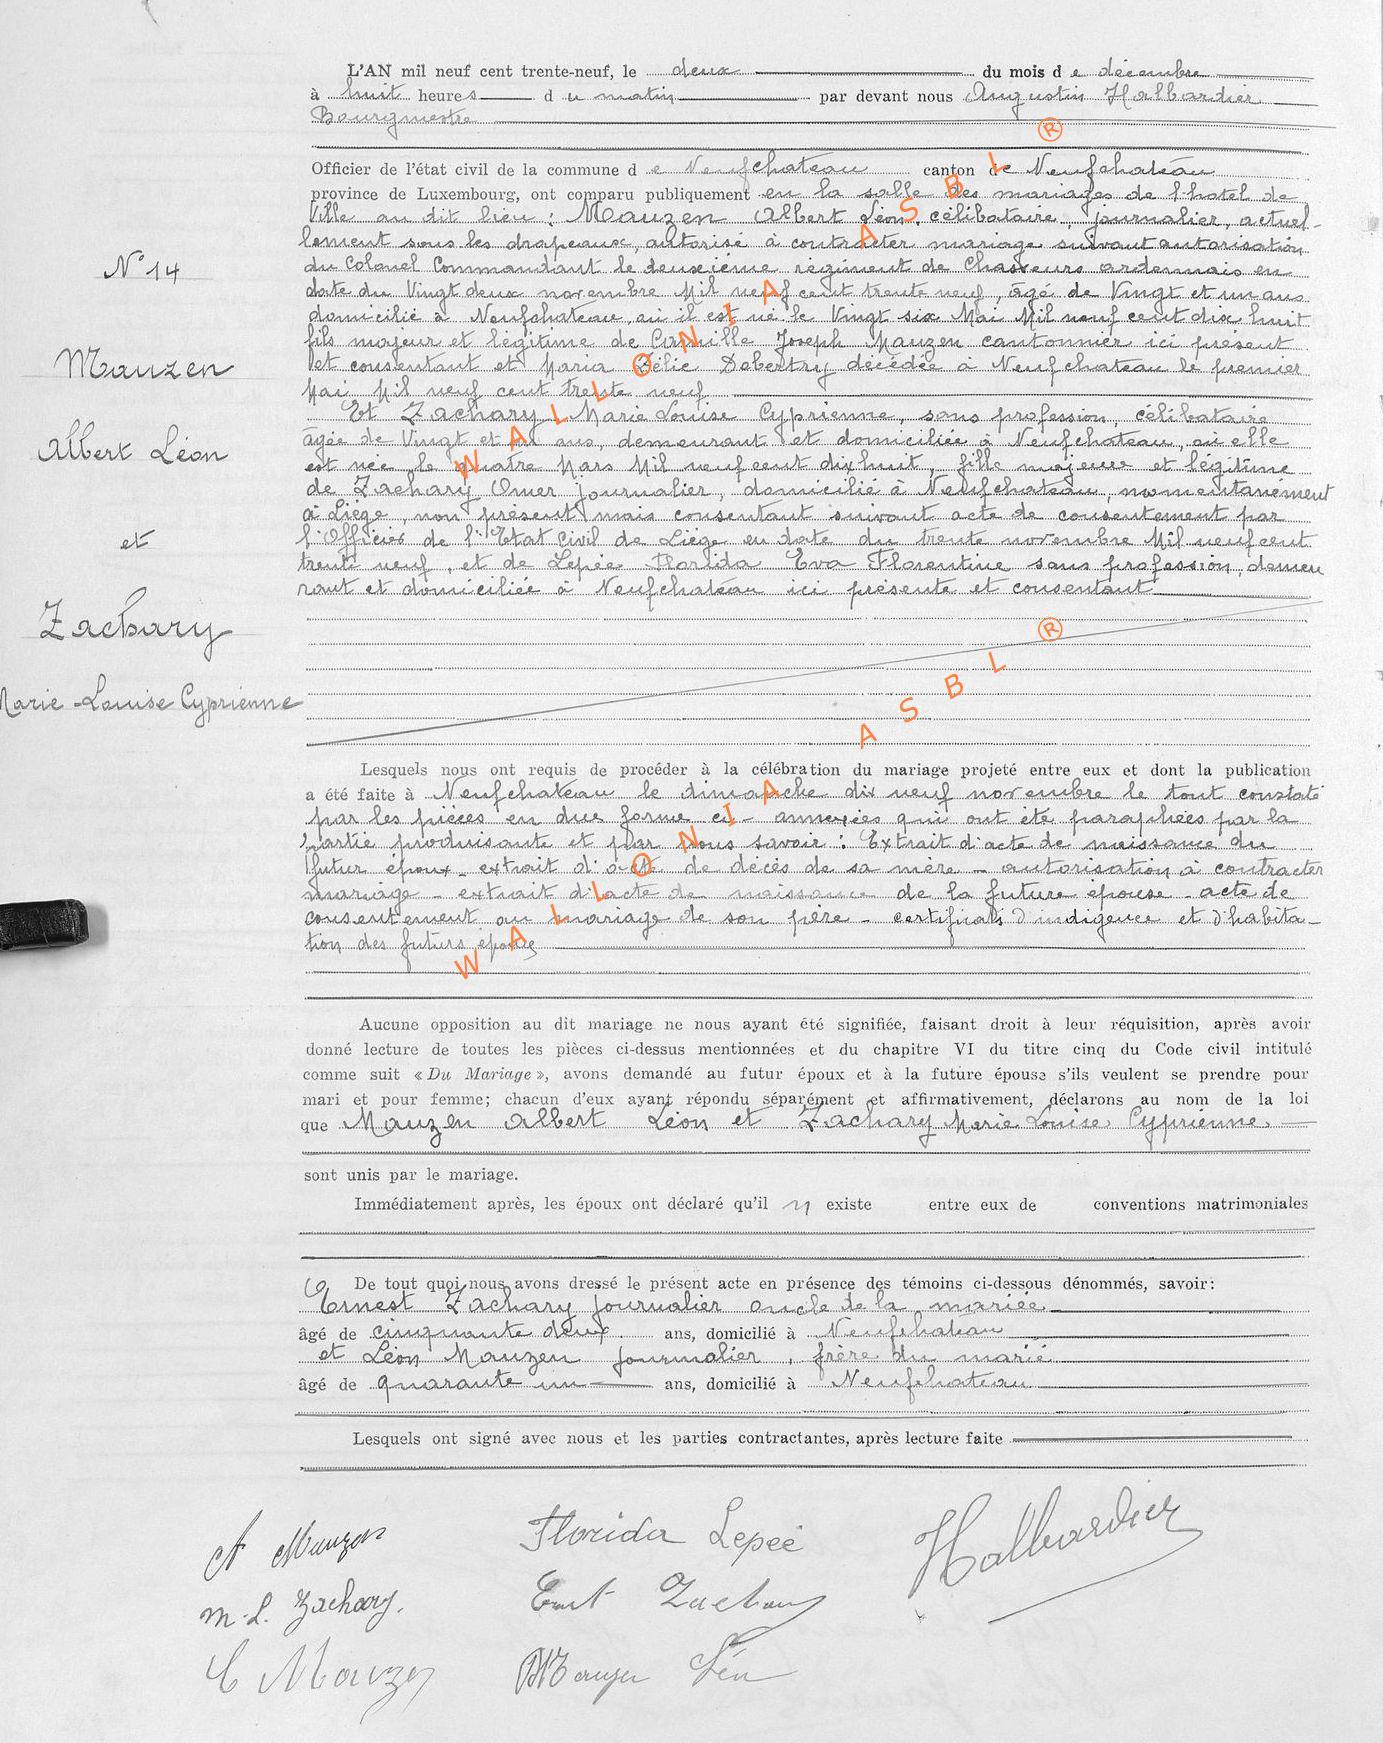 L'AN mil neuf cent trente-neuf, le deux du mois de décembre
à huit heures du matin par devant nous Augustin Halbardier
Bourgmestre
Officier de l'état civil de la commune de Neufchateau canton de Neufchateau
province de Luxembourg, ont comparu publiquement en la salle des mariages de l'hotel de
Ville au dit lieu : Mauzen Albert Léon, célibataire, journalier, actuel-
lement sous les drapeaux, autorisé à contracter mariage suivant autorisation
du Colonel Commandant le deuxième régiment de Chasseurs ardennais en
date du Vingt deux novembre Mil neuf cent trente neuf, âgé de Vingt et un ans
domicilié à Neufchateau, où il est né le Vingt six Mai Mil neuf cent dix huit
N° 14
fils majeur et légitime de Camille Joseph Mauzen cantonnier ici présent
et consentant et Maria Zélie Debertry décédée à Neufchateau le premier
Mai Mil neuf cent trente neuf
Mauzen
Et Zachary Marie Louise Cyprienne, sans profession, célibataire
âgée de Vingt et un ans, demeurant et domiciliée à Neufchateau, où elle
Albert Léon
est née le quatre Mars Mil neuf cent dix huit, fille majeure et légitime
de Zachary Omer journalier, domicilié à Neufchateau, momentanément
à Liège, non présent mais consentant suivant acte de consentement par
et
l'Officier de l'Etat Civil de Liège en date du trente novembre Mil neuf cent
trente neuf, et de Lepée Florida Eva Florentine sans profession, demeu
rant et domiciliée à Neufchateau ici présente et consentant
Zachary
Marie-Louise Cyprienne
Lesquels nous ont requis de procéder à la célébration du mariage projeté entre eux et dont la publication
a été faite à Neufchateau le dimanche dix neuf novembre le tout constaté
par les pièces en due forme ci-annexées qui ont été paraphées par la
partie produisante et par nous savoir : Extrait d'acte de naissance du
futur époux - extrait d'acte de décès de sa mère - autorisation à contracter
mariage - extrait d'acte de naissance de la future épouse - acte de
consentement au mariage de son père - certificats d'indigence et d'habita-
tion des futurs époux
Aucune opposition au dit mariage ne nous ayant été signifiée, faisant droit à leur réquisition, après avoir
donné lecture de toutes les pièces ci-dessus mentionnées et du chapitre VI du titre cinq du Code civil intitulé
comme suit « Du Mariage », avons demandé au futur époux et à la future épouse s'ils veulent se prendre pour
mari et pour femme; chacun d'eux ayant répondu séparément et affirmativement, déclarons au nom de la loi
que Mauzen Albert Léon et Zachary Marie Louise Cyprienne.
sont unis par le mariage.
Immédiatement après, les époux ont déclaré qu'il n existe entre eux de conventions matrimoniales
De tout quoi nous avons dressé le présent acte en présence des témoins ci-dessous dénommés, savoir:
Ernest Zachary journalier oncle de la mariée
âgé de cinquante deux ans, domicilié à Neufchateau
et Léon Mauzen journalier, frère du marié
âgé de quarante un ans, domicilié à Neufchateau
Lesquels ont signé avec nous et les parties contractantes, après lecture faite
A Mauzen Florida Lepée Halbardier
M-L. Zachary. Ernest Zachary
C Mauzen Mauzen Léon
WALLONIA ASBL ®
WALLONIA ASBL ®